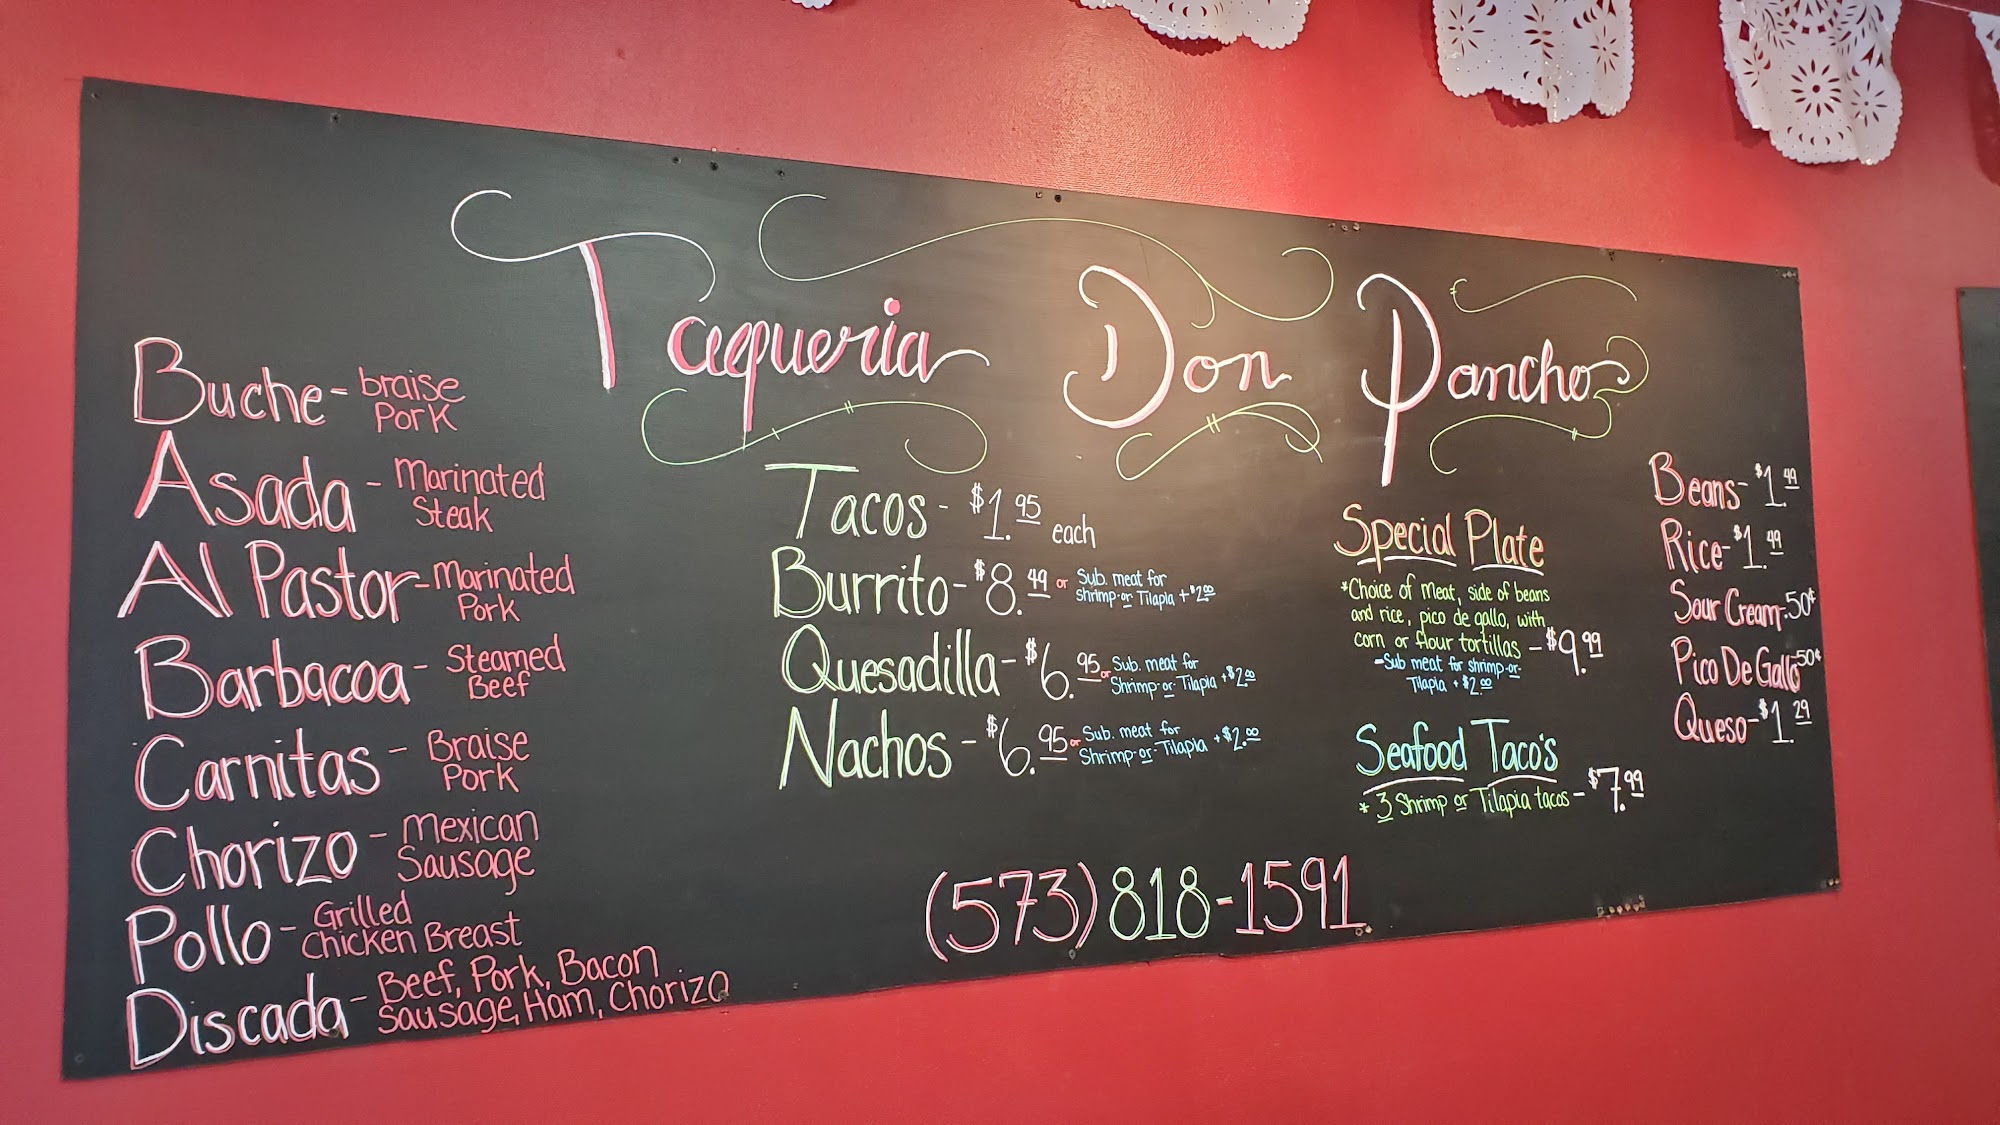 Taqueria Don Pancho
Buche - braise
Pork
Asada - Marinated
Steak
Al Pastor - Marinated
Pork
Barbacoa - Steamed
Beef
Carnitas - Braise
Pork
Chorizo - Mexican
Sausage
Pollo - Grilled
Chicken Breast
Discada - Beef, Pork, Bacon
Sausage, Ham, Chorizo
Tacos - $1.95 each
Burrito - $8.49 or Sub. meat for
shrimp or Tilapia + $2.00
Quesadilla - $6.95 or Sub. meat for
Shrimp or Tilapia + $2.00
Nachos - $6.95 or Sub. meat for
Shrimp or Tilapia + $2.00
Special Plate
*Choice of meat, side of beans
and rice, pico de gallo, with
corn or flour tortillas - $9.99
- Sub meat for shrimp or
Tilapia + $2.00
Seafood Taco's
* 3 Shrimp or Tilapia tacos - $7.99
Beans - $1.49
Rice - $1.49
Sour Cream - 50¢
Pico De Gallo 50¢
Queso - $1.29
(573) 818-1591